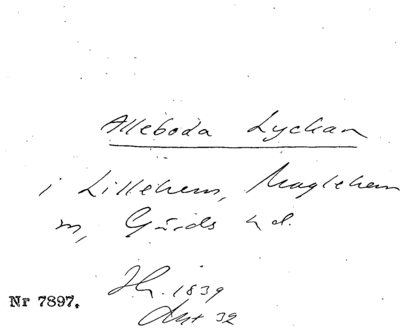 Alleboda Lyckan
i Lillehem, Maglehem
sn, Gärds hd.
Nr 7897.
1839
32